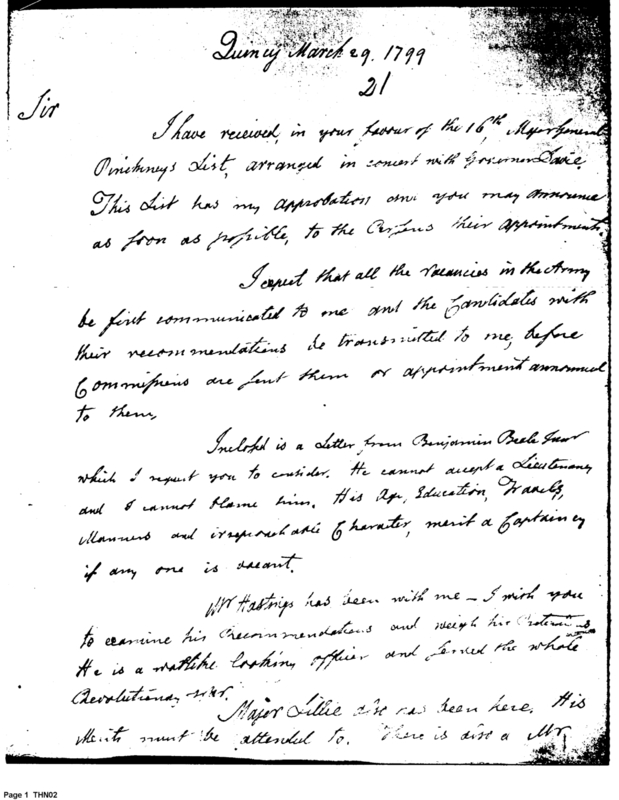 Quincy March 29. 1799
21
Sir
I have received, in your favour of the 16th, Major General
Pinckneys List, arranged in concert with Governor Davie.
This List has my approbation and you may announce
as soon as possible, to the Persons their appointments.
I expect that all the vacancies in the Army
be first communicated to me and the Candidates with
their recommendations be transmitted to me, before
Commissions are sent them or appointment announced
to them.
Inclosed is a Letter from Benjamin Beale Junr
which I request you to consider. He cannot accept a Lieutenancy
and I cannot blame him. His Age, Education, Travels,
Manners and irreproachable Character, merit a Captaincy
if any one is vacant.
Mr Hastings has been with me — I wish you
to examine his Recommendations and weigh his Pretensions
He is a warlike looking officer and served the whole
Revolutionary war.
Major Lillie also has been here. His
Merits must be attended to. There is also a Mr.
Page 1 THN02